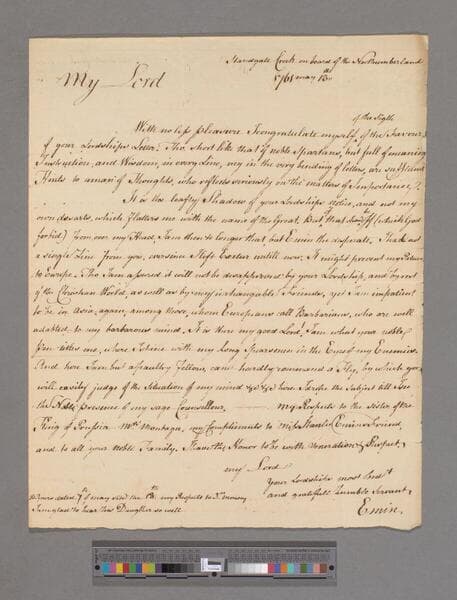 Standgate Creek on board of the Northumberland
1761 may 13th
My Lord
of the Sight
With no less pleasure I congratulate myself of the Favour
of your Lordships Letter. Tho, short like that of noble Spartans, but full of meaning
Instruction, and Wisdom, in every Line, nay in the very bending of letters, are sufficient
Hints to a man of Thoughts, who reflects seriously on the matters of Importance,
It is the leafley Shadow of your Lordships notice, and not my
own desarts, which flatters me with the name of the Great. But that being off (which God
forbid) from over my Head, I am then no longer that but Emin the desperate. Thank not
a single Line from you, oversince Miss Exeter untill now. It might prevent my Return
to Europe. Tho I am assured it will not be disapproved by your Lordship, and by rest
of the Christian World, as well as by my unchangable Friends, yet I am impatient
to be in Asia, again, among those, whom Europeans call Barbarians, who are well
adapted to my barbarous mind. It is there my good Lord! I am what your noble
Pen titles me, where I shine with my long Spear even in the Eyes of my Enemies.
And here I am but a paultry Fellow, cane hardly command a Fly, by which you
will easily judge of the Situation of my mind here I write the Subject till I see
the Noble Presence of my sage Councellour. my Respects to the Sister of the
King of Prussia Mrs. Montagu, my Compliments to Miss Stanlie Emins Friend,
and to all your noble Family. I have the Honor to be with Veneration & Respect,
my Lord
Your Lordships most Obedt
and gratefull humble Servant
Emin.
yours dated 7th of may rec'd the 13th my Respects to Dr. Monsey
I am glad to hear his Daughter so well